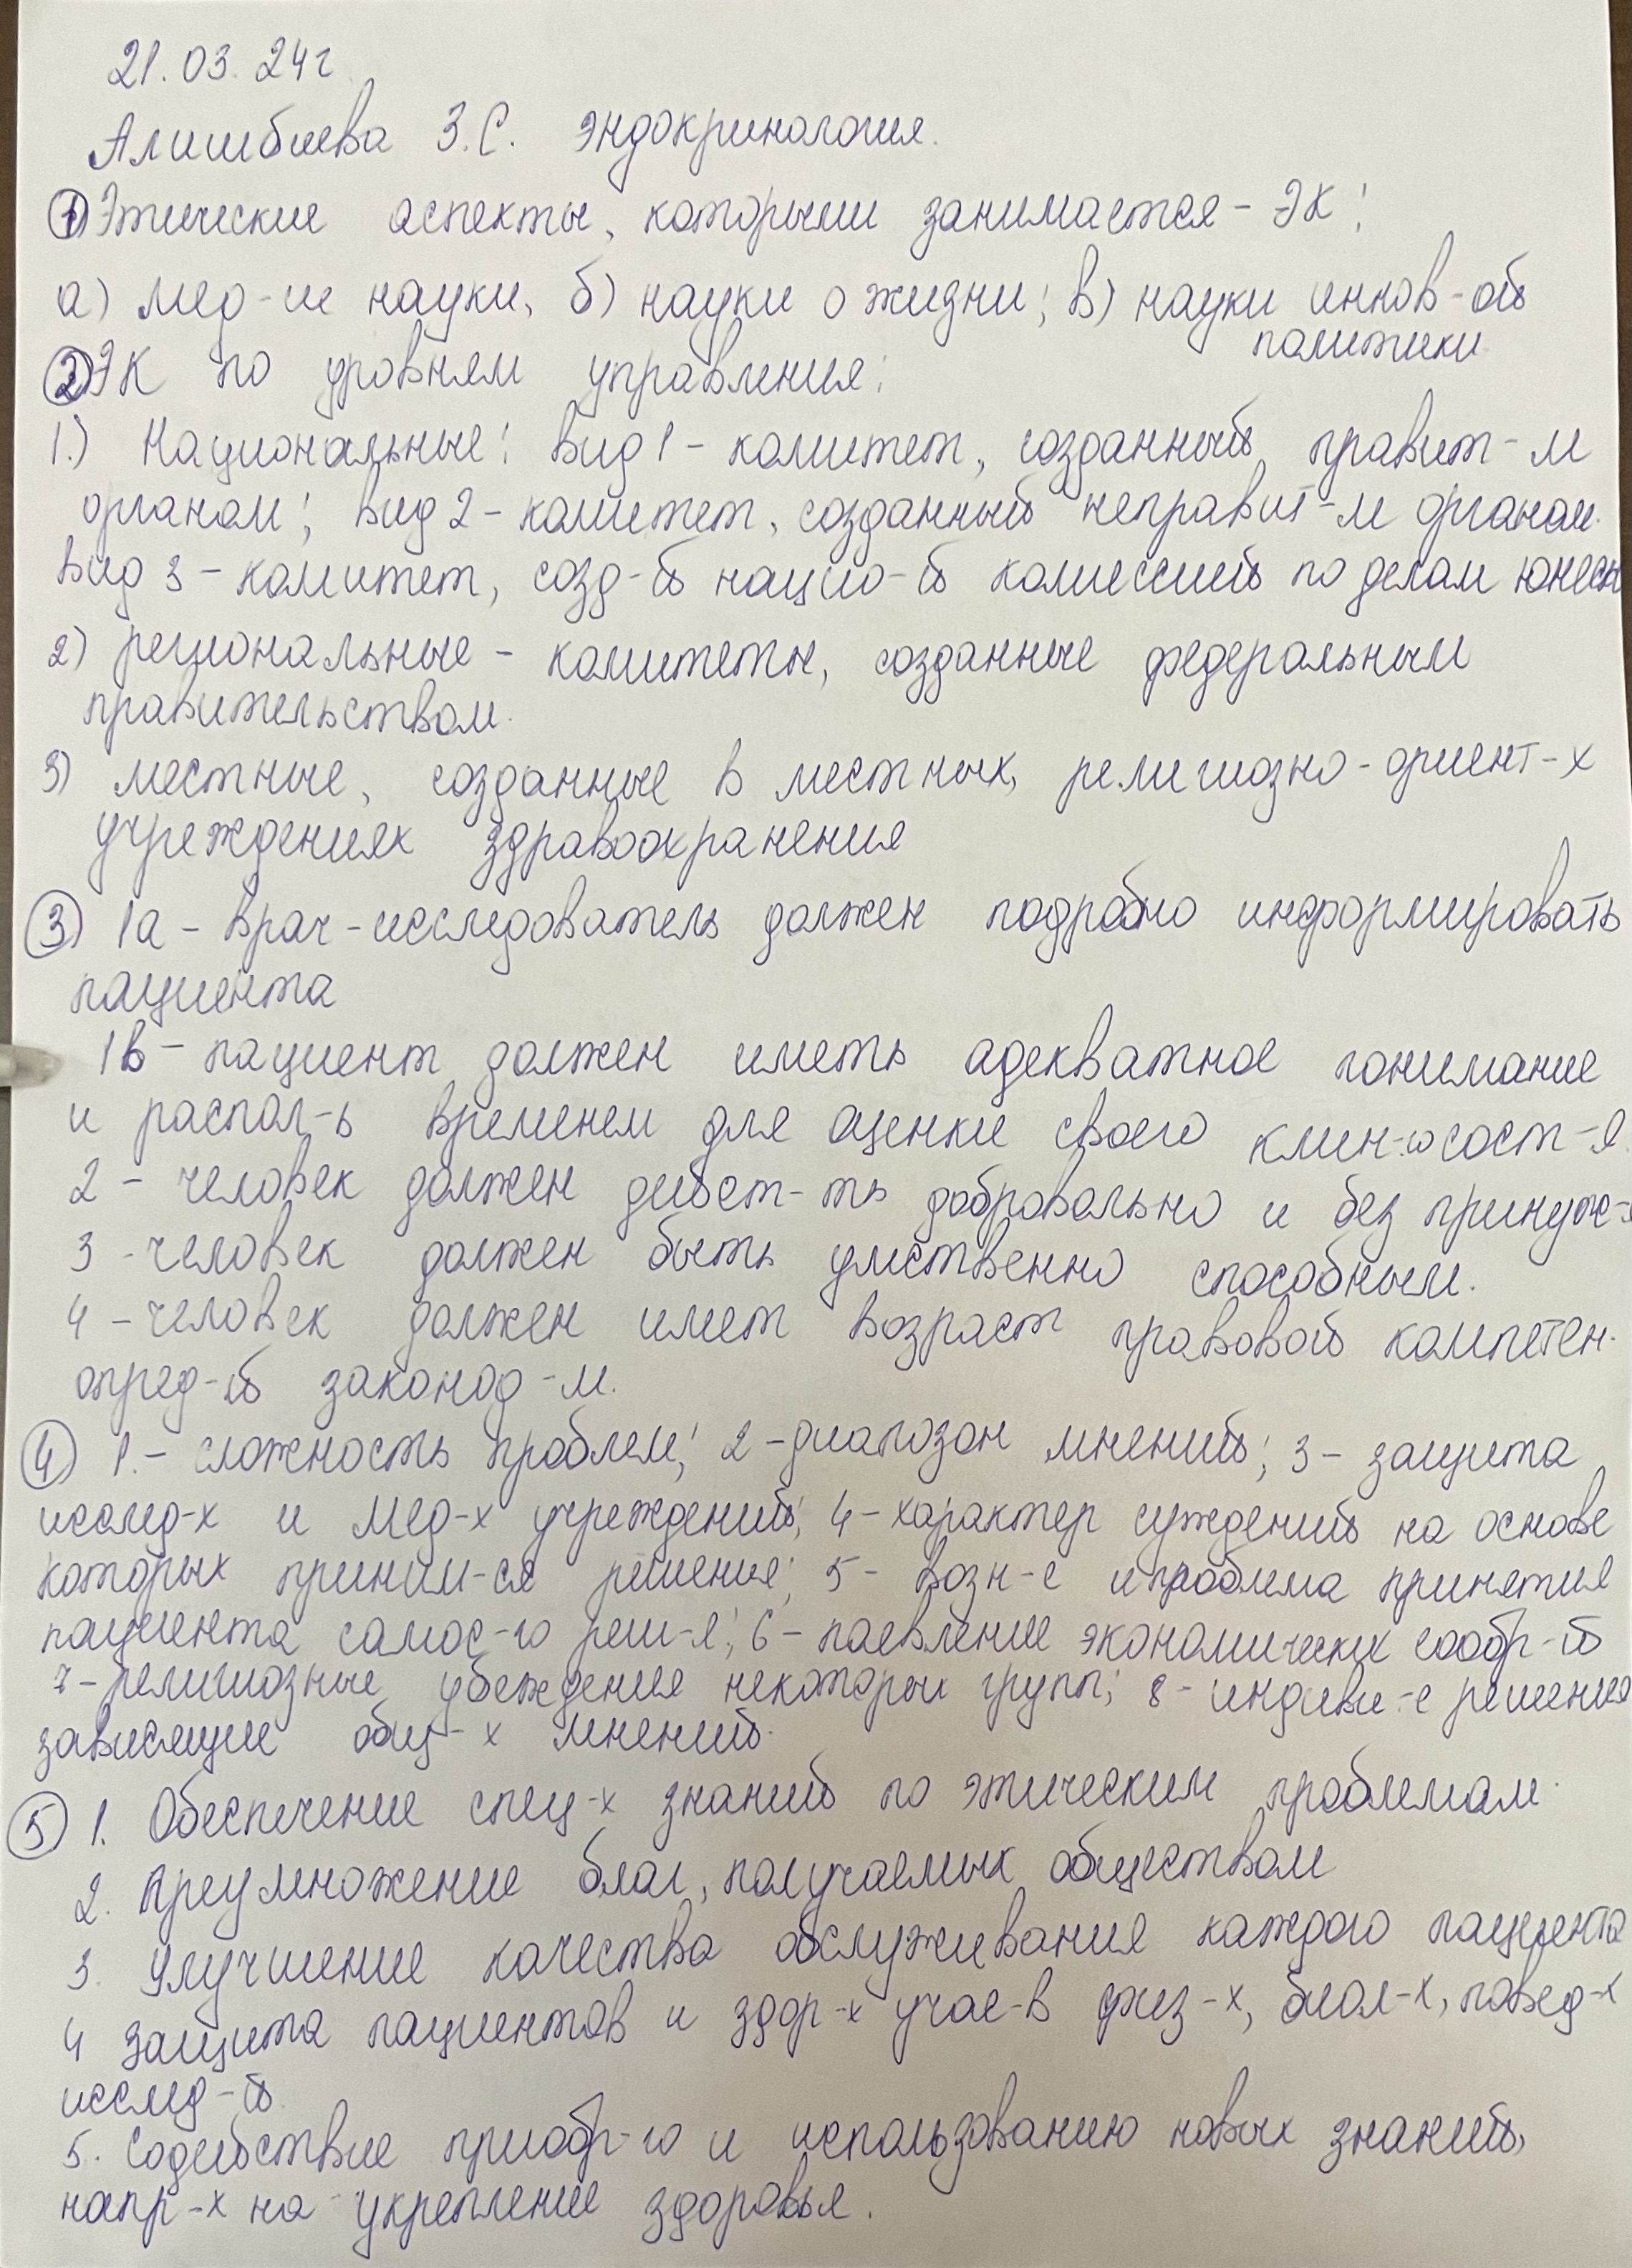 21.03.24г
Алишбиева З.С. эндокринология.
① Этические аспекты, которыми занимается - ЭК:
а) мед-ие науки, б) науки о жизни; в) науки иннов-ой
политики
② ЭК по уровням управления:
1.) Национальные: вид 1 - комитет, созданный правит-м
органом; вид 2 - комитет, созданный неправит-м органом.
вид 3 - комитет, созд-й нацио-й комиссией по делам юнеск
2) региональные - комитеты, созданные федеральным
правительством.
3) местные, созданные в местных, религиозно-ориент-х
учреждениях здравоохранения
③ 1а - врач-исследователь должен подробно информировать
пациента
1в - пациент должен иметь адекватное понимание
и распол-ь временем для оценки своего клин-о сост-я.
2 - человек должен дейст-ть добровольно и без принуж-
3 - человек должен быть умственно способным.
4 - человек должен имет возраст правовой компетен.
опред-й законод-м.
④ 1. - сложность проблем; 2 - диапозон мнений; 3 - защита
исслед-х и мед-х учреждений; 4 - характер суждений на основе
которых приним-ся решения; 5 - возн-е проблема принятия
пациента самос-го реш-я; 6 - появление экономических сообр-й
7 - религиозные убеждения некоторых групп; 8 - индиви-е решения
зависящие общ-х мнений.
⑤ 1. Обеспечение спец-х знаний по этическим проблемам.
2. Преумножение благ, получаемых обществом
3. Улучшение качества обслуживания каждого пациента
4 Защита пациентов и здор-х учас-в физ-х, биол-х, повед-х
исслед-й.
5. Содействие приобр-ю и использованию новых знаний,
напр-х на укрепление здоровья.